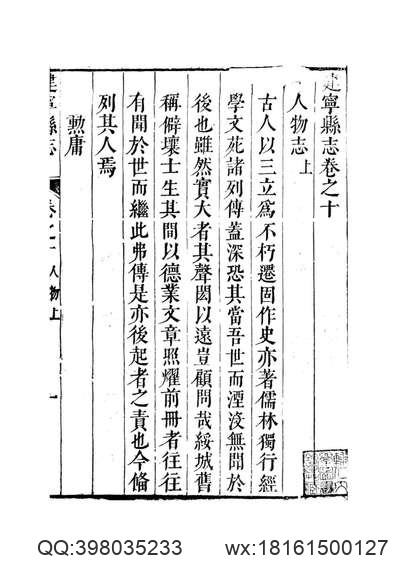 建寧縣志卷之十
人物志上
古人以三立爲不朽遷固作史亦著儒林獨行經
學文苑諸列傳蓋深恐其當吾世而湮沒無聞於
後也雖然實大者其聲閎以遠豈顧問哉綏城舊
稱僻壤士生其間以德業文章照耀前冊者往往
有聞於世而繼此弗傳是亦後起者之責也今偹
列其人焉
勲庸
建寧縣志
卷之十
人物上
一
QQ:398035233
wx:18161500127